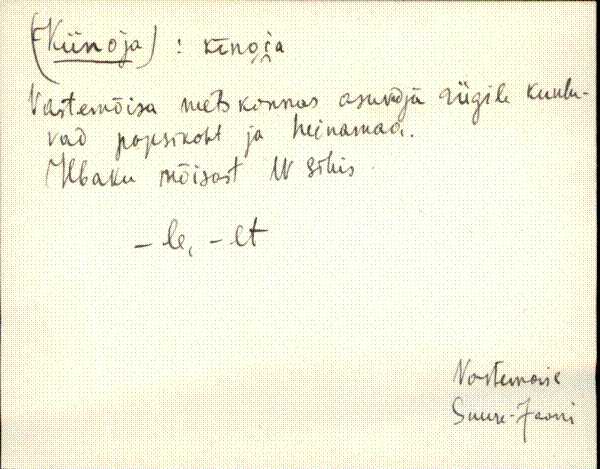 (Kiinoja) : kīnoi̯a
Vastemõisa metskonnas asuvad riigile kuulu-
vad popsikoht ja heinamaa.
Ilbaku mõisast W sihis.
- le, - lt
Vastemõisa
Suure-Jaani